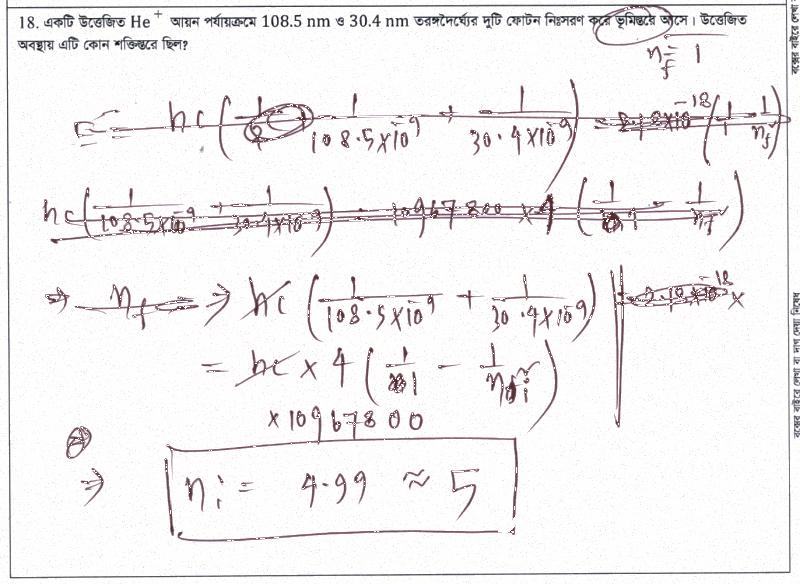 18. একটি উত্তেজিত He⁺ আয়ন পর্যায়ক্রমে 108.5 nm ও 30.4 nm তরঙ্গদৈর্ঘ্যের দুটি ফোটন নিঃসরণ করে ভূমিস্তরে আসে। উত্তেজিত
অবস্থায় এটি কোন শক্তিস্তরে ছিল?
n_f = 1
hc ( 1/(108.5×10⁻⁹) + 1/(30.4×10⁻⁹) ) = 2.18×10⁻¹⁸ ( 1/1 - 1/n_f )
hc ( 1/(108.5×10⁻⁹) + 1/(30.4×10⁻⁹) ) = 10967800 × 4
⇒ n_f ⇒ hc ( 1/(108.5×10⁻⁹) + 1/(30.4×10⁻⁹) )
= hc × 4 ( 1/1 - 1/n_i² )
× 10967800
⇒ n_i = 4.99 ≈ 5